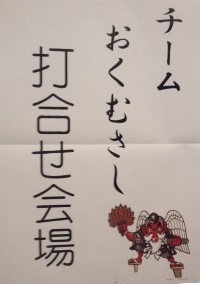 チーム
おくむさし
打合せ会場